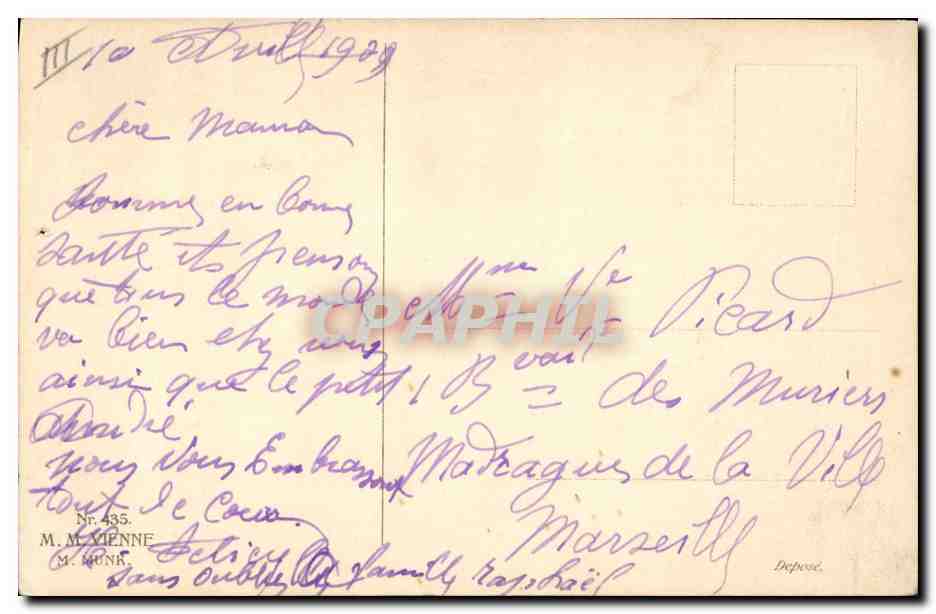 III
10 Avril 1909
chère Maman
Sommes en bonne
santé et pensons
que tous le monde
va bien chez vous
ainsi que le petit
André
nous vous Embrassons
tout de Coeur.
Nr. 435.
M. M. VIENNE
M. MUNK.
sans oublier la famille raphaël
CPAPHIL
Mme Vve Picard
1 Bvard des Muriers
Madragues de la Ville
Marseille
Déposé.